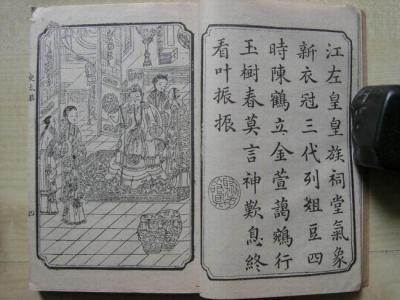 江左皇皇族祠堂氣象
新衣冠三代列俎豆四
時陳鶴立金萱藹鵷行
玉樹春莫言神歎息終
看叶振振
史太君
四